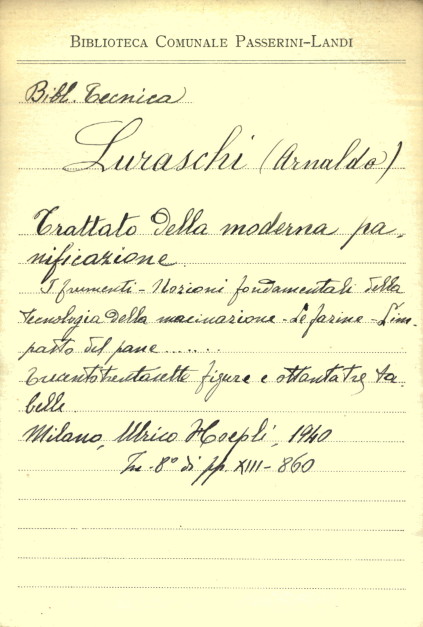 BIBLIOTECA COMUNALE PASSERINI-LANDI
Bibl. Tecnica
Luraschi (Arnaldo)
Trattato della moderna pa-
nificazione
I frumenti - Nozioni fondamentali della
tecnologia della macinazione - Le farine - L'im-
pasto del pane ......
Trecentotrentasette figure e ottantatre ta-
belle.
Milano, Ulrico Hoepli, 1940
In-8° di pp. XIII-860